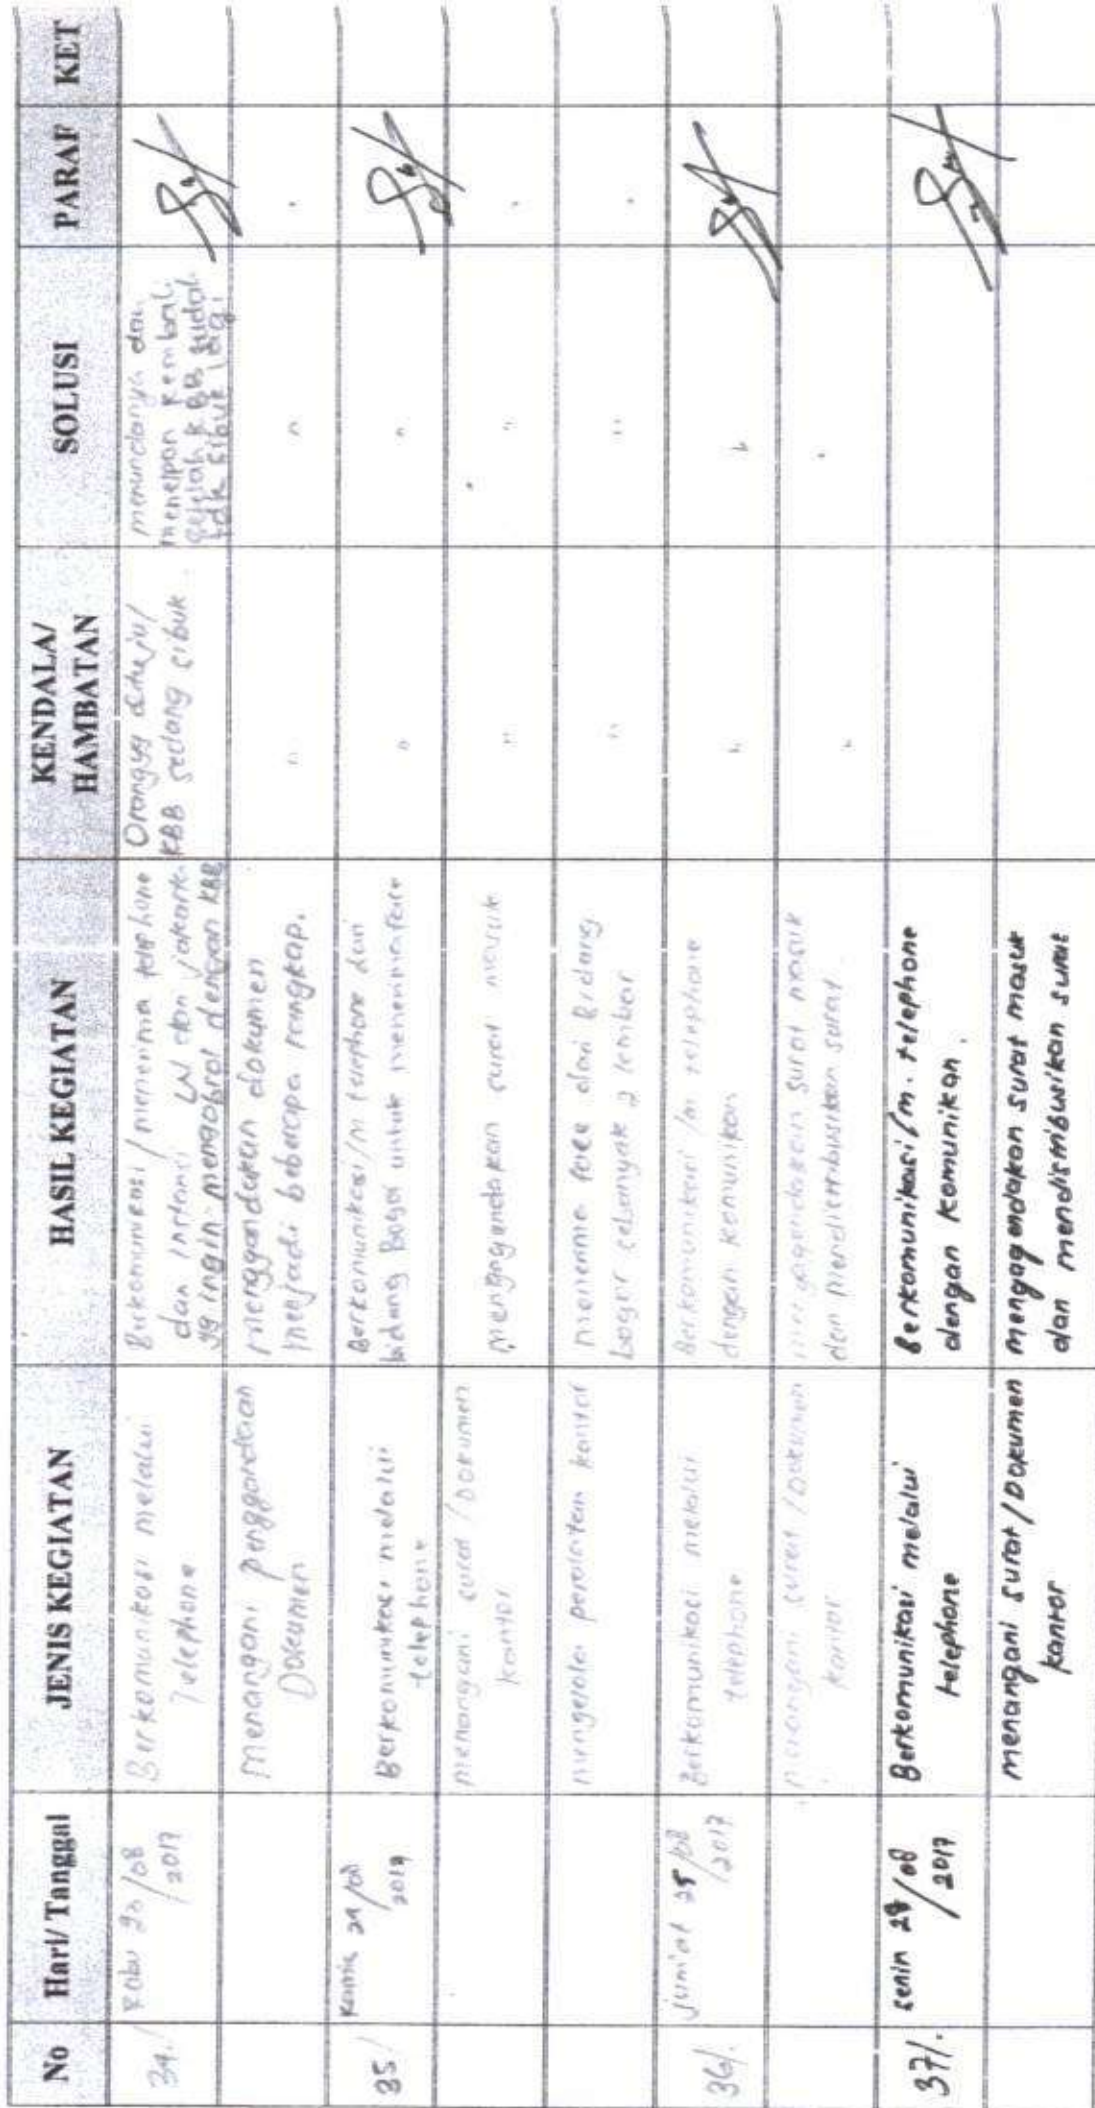 No Hari/ Tanggal JENIS KEGIATAN HASIL KEGIATAN KENDALA/ HAMBATAN SOLUSI PARAF KET
34/. Rabu 23/08 2017
Berkomunikasi melalui
Telephone
Berkomunikasi / menerima telephone
dari instansi LN dan jakarta
yg ingin mengobrol dengan KBB
Orang yg dituju/
KBB sedang sibuk
menundanya dan
menelpon kembali
setelah KBB sudah
tdk sibuk lagi
Menangani penggandaan
Dokumen
menggandakan dokumen
menjadi beberapa rangkap.
"
"
35/ Kamis 24/08 2017
Berkomunikasi melalui
telephone
Berkomunikasi/m telephone dari
bidang Bogor untuk menerima face
"
"
menangani surat / Dokumen
kantor
mengagendakan surat masuk
"
"
mengelola peralatan kantor
menerima face dari Bidang
bogor sebanyak 2 lembar
"
"
36/. jum'at 25/08 2017
Berkomunikasi melalui
telephone
Berkomunikasi /m telephone
dengan komunikan
"
"
menangani surat / Dokumen
kantor
mengagendakan surat masuk
dan mendistribusikan surat.
"
"
37/. senin 28/08 2017
Berkomunikasi melalui
telephone
Berkomunikasi/m. telephone
dengan komunikan.
menangani surat / Dokumen
kantor
mengagendakan surat masuk
dan mendistribusikan surat